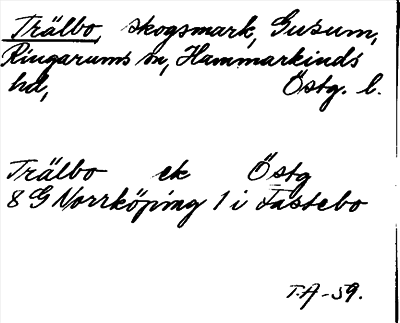 Trälbo, skogsmark, Gusum,
Ringarums sn, Hammarkinds
hd, Östg. l.
Trälbo ek Östg
8 G Norrköping 1 i Fastebo
T.A -59.